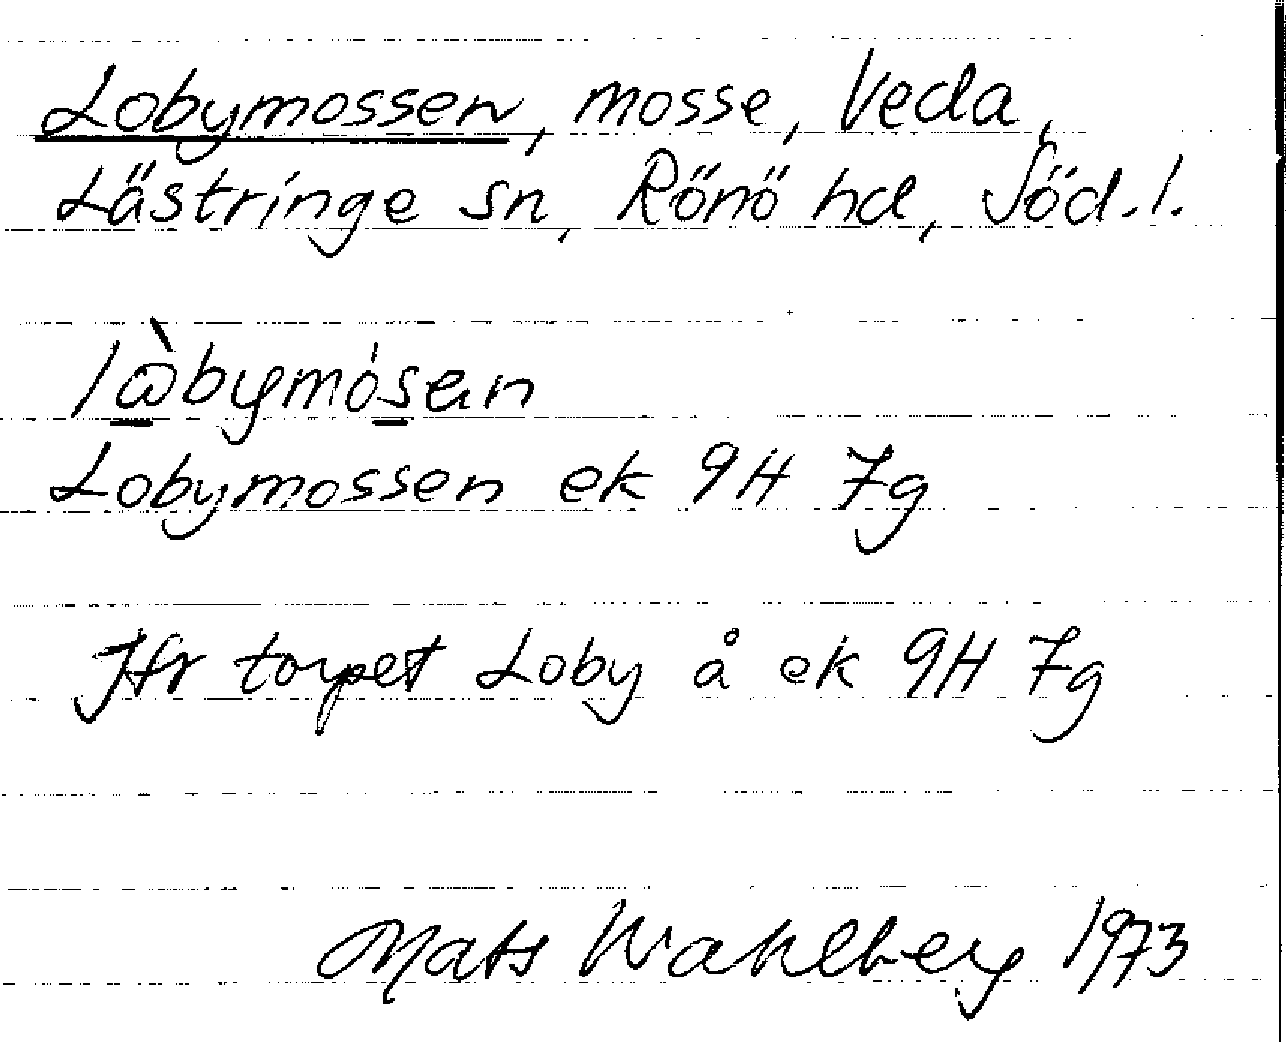 Lobymossen, mosse, Veda,
Lästringe sn, Rönö hd, Söd.l.
l@̀bymósen
Lobymossen ek 9H 7g
Jfr torpet Loby å ek 9H 7g
Mats Wahlberg 1973